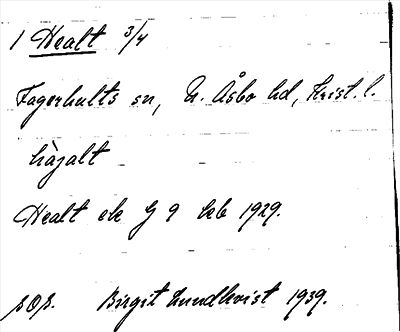 1 Healt 3/4
Fagerhults sn, N. Åsbo hd, Krist. l.
hàjalt
Healt ek G 9 beb 1929.
sOs. Birgit Lundkvist 1939.